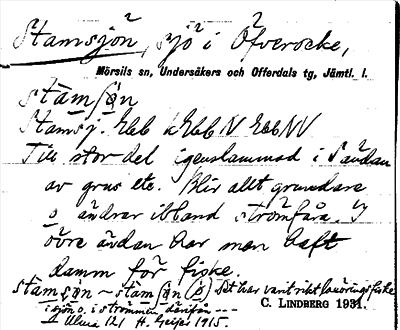 Stamsjön, sjö i Öfverocke,
Mörsils sn, Undersåkers och Offerdals tg, Jämtl. l.
stamsǫ̈n
Stamsj. Ebb k Ebb N Ebb NV
Till stor del igenslammad i S ändan
av grus etc. Blir allt grundare
o ändrar ibland strömfåra. I
övre ändan har man haft
damm för fiske.
stamsǫ̈n ~ stamsǫ̈n (s) Det har varit rikt fiske
i sjön o. i strömmen därifrån ---
H. Geijer 1915.
C. LINDBERG 1931.